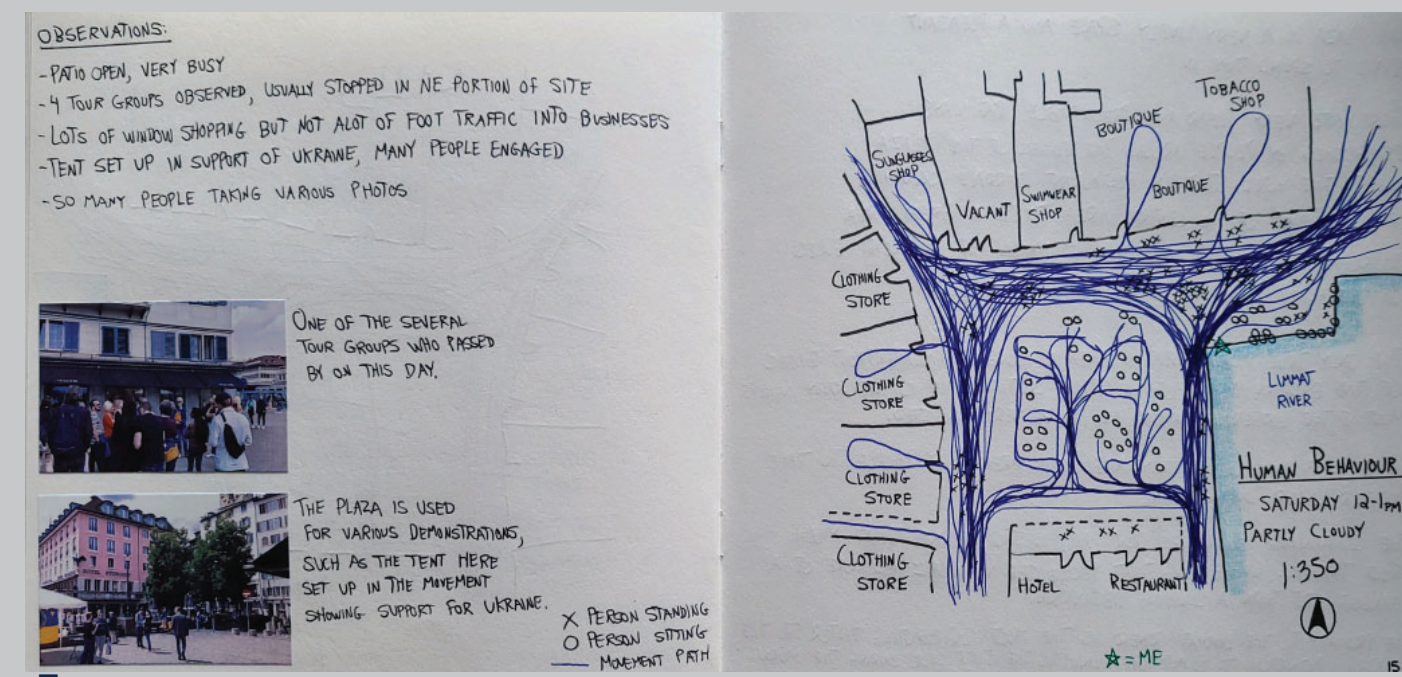 OBSERVATIONS:
-PATIO OPEN, VERY BUSY
-4 TOUR GROUPS OBSERVED, USUALLY STOPPED IN NE PORTION OF SITE
-LOTS OF WINDOW SHOPPING BUT NOT ALOT OF FOOT TRAFFIC INTO BUSINESSES
-TENT SET UP IN SUPPORT OF UKRAINE, MANY PEOPLE ENGAGED
-SO MANY PEOPLE TAKING VARIOUS PHOTOS
ONE OF THE SEVERAL
TOUR GROUPS WHO PASSED
BY ON THIS DAY.
THE PLAZA IS USED
FOR VARIOUS DEMONSTRATIONS,
SUCH AS THE TENT HERE
SET UP IN THE MOVEMENT
SHOWING SUPPORT FOR UKRAINE.
X PERSON STANDING
O PERSON SITTING
— MOVEMENT PATH
TOBACCO
SHOP
BOUTIQUE
SUNGLASSES
SHOP
BOUTIQUE
VACANT
SWIMWEAR
SHOP
CLOTHING
STORE
CLOTHING
STORE
CLOTHING
STORE
CLOTHING
STORE
HOTEL
RESTAURANT
LIMMAT
RIVER
HUMAN BEHAVIOUR
SATURDAY 12-1PM
PARTLY CLOUDY
1:350
☆ = ME
15